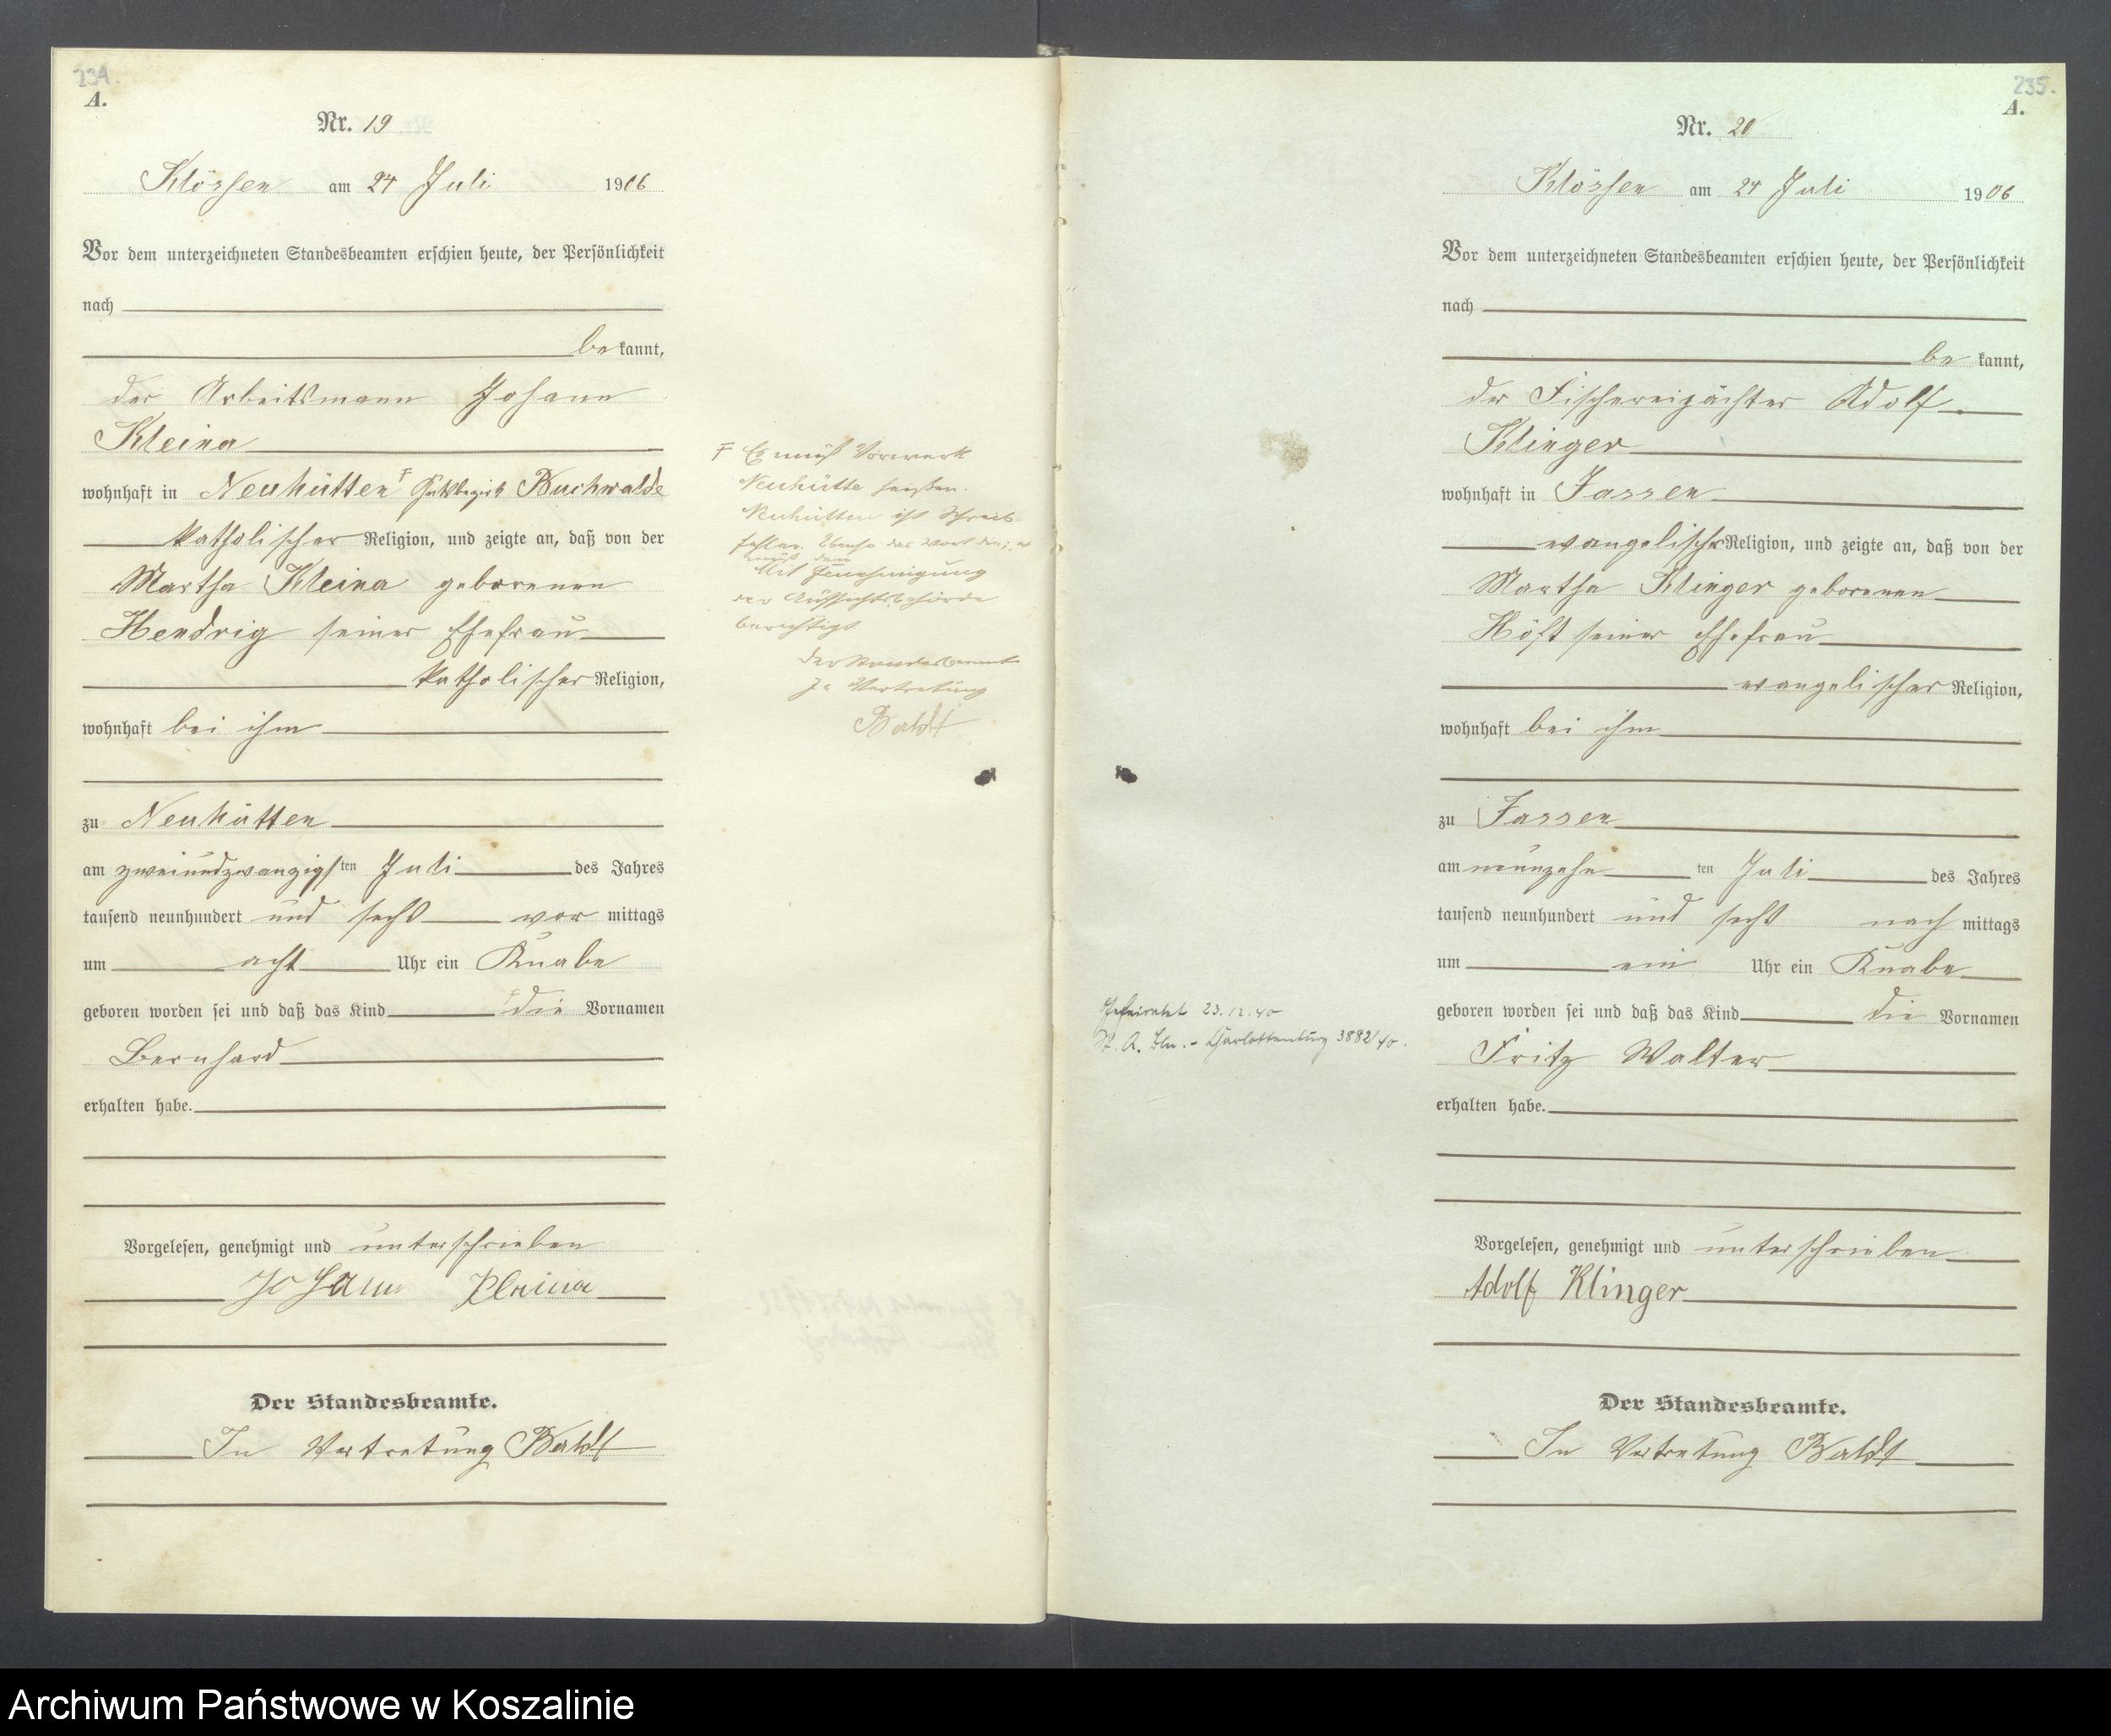 234.
A.
Nr. 19
Klössen am 24 Juli 1906
Vor dem unterzeichneten Standesbeamten erschien heute, der Persönlichkeit
nach
be kannt,
der Arbeitsmann Johann
Kleina
wohnhaft in Neuhütten Gutsbezirk Buchwalde
katholischer Religion, und zeigte an, daß von der
Martha Kleina geborenen
Hendrig seiner Ehefrau
katholischer Religion,
wohnhaft bei ihm
zu Neuhütten
am zweiundzwanzigsten Juli des Jahres
tausend neunhundert und sechs vor mittags
um acht Uhr ein Knabe
geboren worden sei und daß das Kind die Vornamen
Bernhard
erhalten habe.
Vorgelesen, genehmigt und unterschrieben
Johann Kleina
Der Standesbeamte.
In Vertretung Baldt
Es muß Vorwerk
Neuhütte heißen.
Neuhütten ist Schreib
fehler. Ebenso das Wort die;
muß den
Mit Genehmigung
der Aufsichtsbehörde
berichtigt
Der Standesbeamte
In Vertretung
Baldt
235.
A.
Nr. 20
Klössen am 24 Juli 1906
Vor dem unterzeichneten Standesbeamten erschien heute, der Persönlichkeit
nach
be kannt,
der Fischereipächter Adolf
Klinger
wohnhaft in Jassen
evangelischer Religion, und zeigte an, daß von der
Martha Klinger geborenen
Höft seiner Ehefrau
evangelischer Religion,
wohnhaft bei ihm
zu Jassen
am neunzehn ten Juli des Jahres
tausend neunhundert und sechs nach mittags
um ein Uhr ein Knabe
geboren worden sei und daß das Kind die Vornamen
Fritz Walter
erhalten habe.
Vorgelesen, genehmigt und unterschrieben
Adolf Klinger
Der Standesbeamte.
In Vertretung Baldt
Geheiratet 23.12.40
St. A. Bln. - Charlottenburg 3882/40.
Archiwum Państwowe w Koszalinie